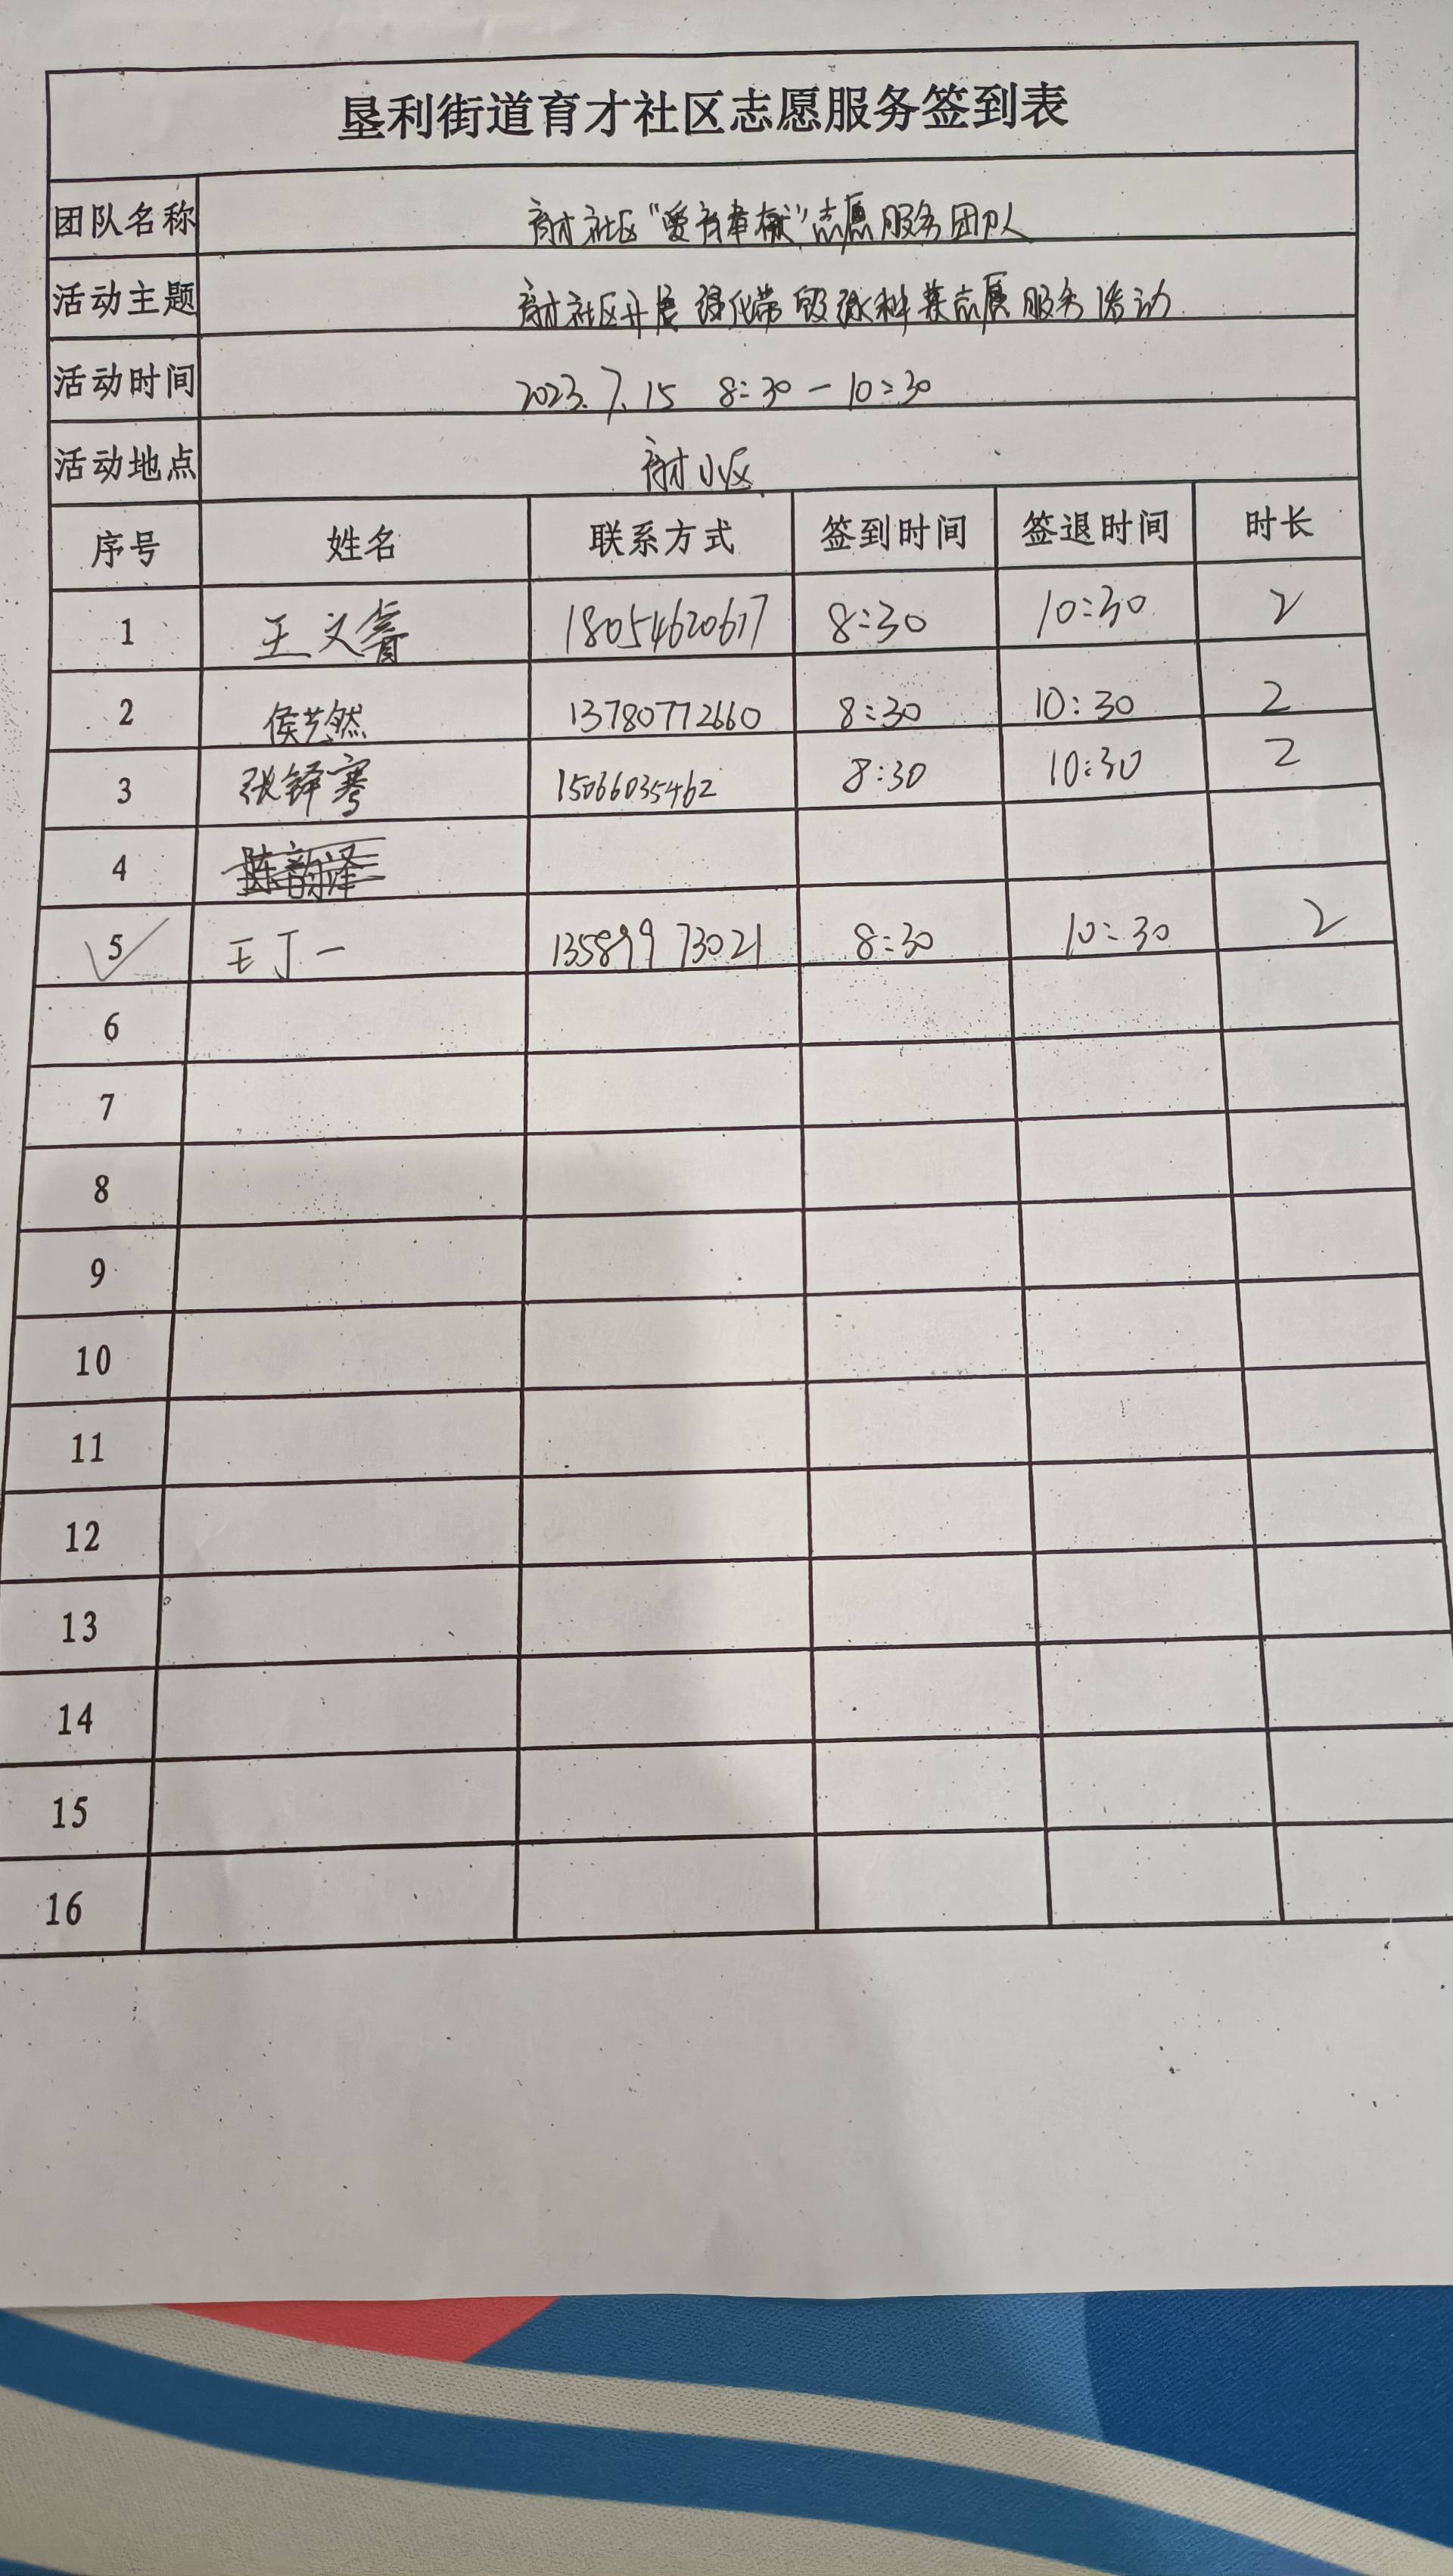 垦利街道育才社区志愿服务签到表
团队名称 育才社区“爱育奉献”志愿服务团队
活动主题 育才社区开展绿化带毁绿种菜志愿服务活动
活动时间 2023.7.15 8:30-10:30
活动地点 育才小区
序号 姓名 联系方式 签到时间 签退时间 时长
1 王义睿 18054620617 8:30 10:30 2
2 侯艺然 13780772660 8:30 10:30 2
3 张铎骞 15066035462 8:30 10:30 2
4 陈韵泽
5 王丁一 13589973021 8:30 10:30 2
6
7
8
9
10
11
12
13
14
15
16